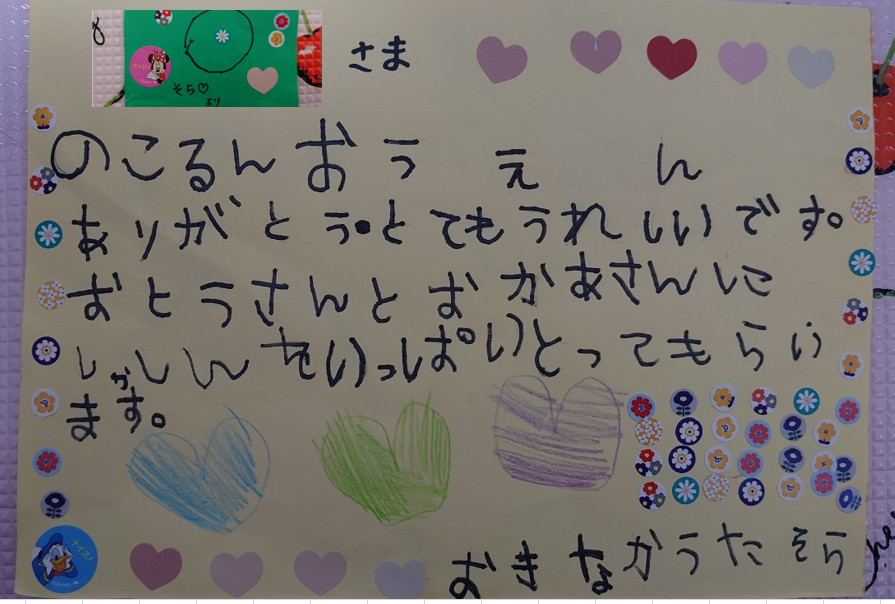 さま
そら♡
より
のこるんおうえん
ありがとう。とてもうれしいです。
おとうさんとおかあさんに
しゃしんをいっぱいとってもらい
ます。
ナイス!
おきなかうた そら